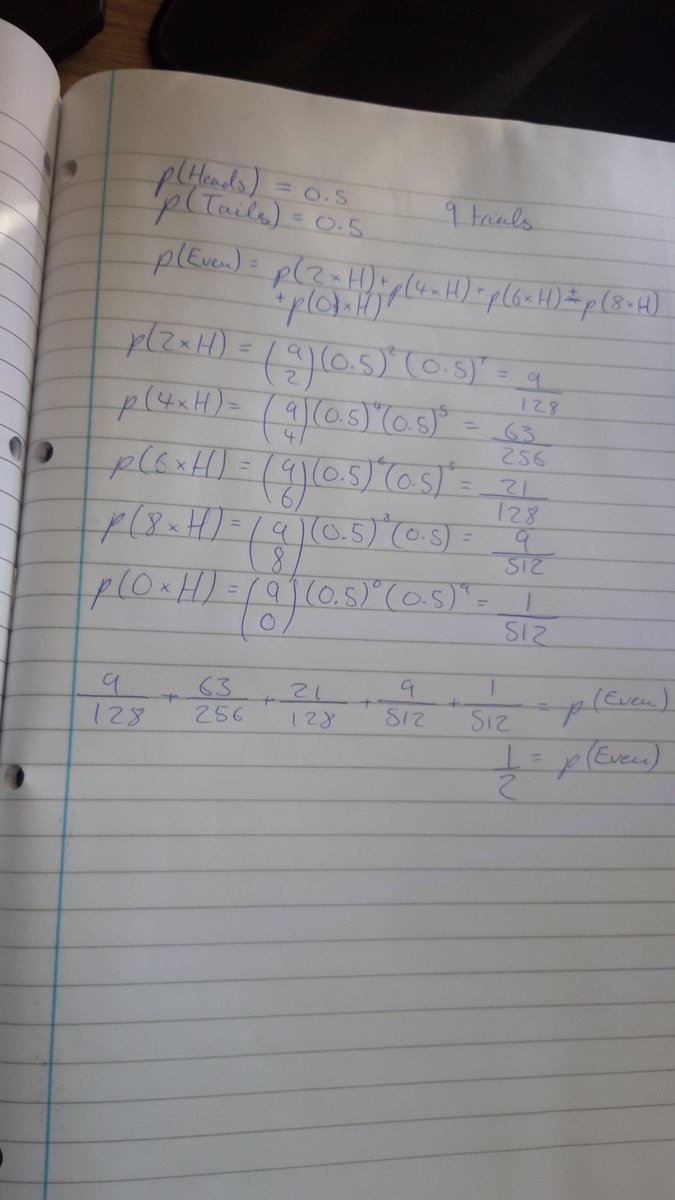 p(Heads) = 0.5
p(Tails) = 0.5 9 trials
p(Even) = p(2×H) + p(4×H) + p(6×H) + p(8×H)
+ p(0×H)
p(2×H) = (9 2)(0.5)²(0.5)⁷ = 9/128
p(4×H) = (9 4)(0.5)⁴(0.5)⁵ = 63/256
p(6×H) = (9 6)(0.5)⁶(0.5)³ = 21/128
p(8×H) = (9 8)(0.5)⁸(0.5) = 9/512
p(0×H) = (9 0)(0.5)⁰(0.5)⁹ = 1/512
9/128 + 63/256 + 21/128 + 9/512 + 1/512 = p(Even)
1/2 = p(Even)